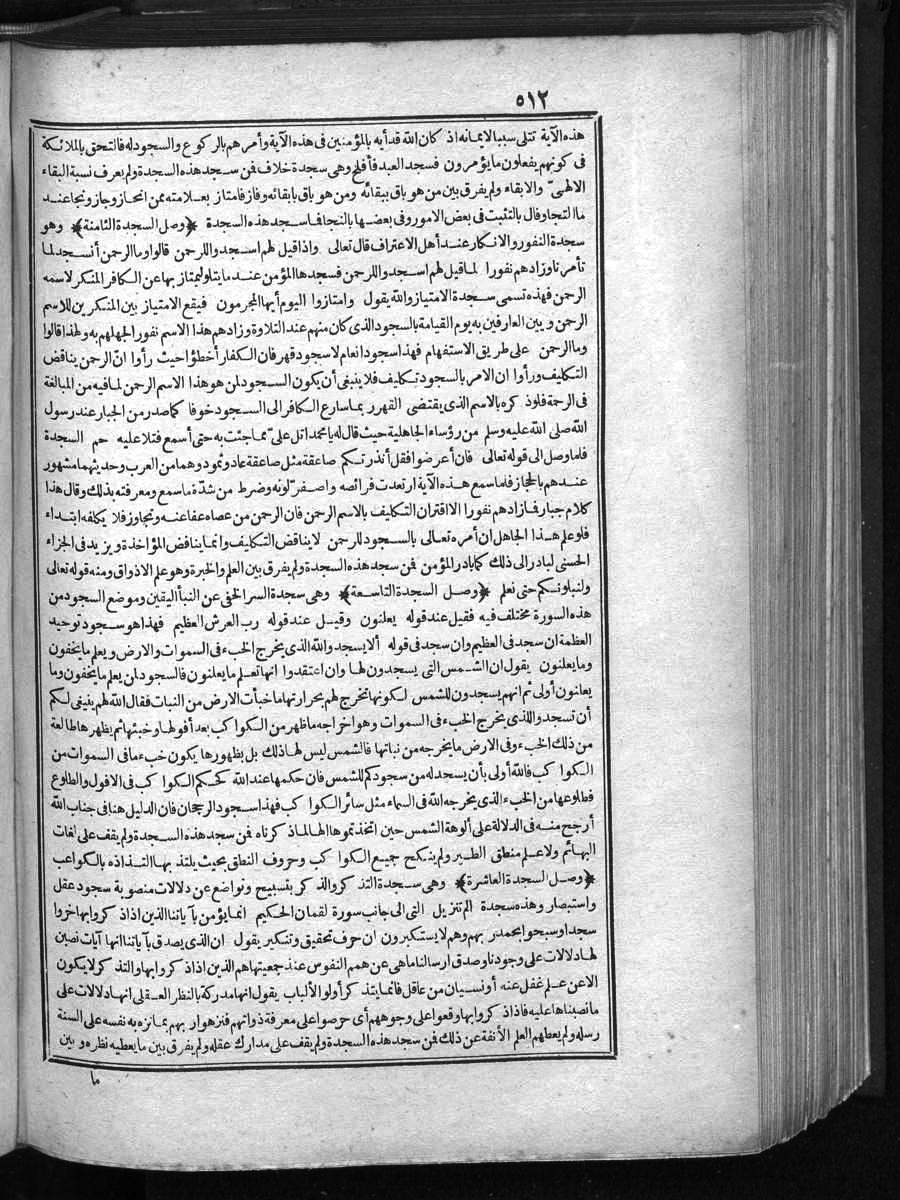 ٥١٢
هذه الآية تتلى سببا لايمانه اذ كان الله قد أيه بالمؤمنين فى هذه الآية وأمرهم بالركوع والسجود له فالتحق بالملائكة
فى كونهم يفعلون ما يؤمرون فسجد العبد فأفلح وهى سجدة خلاف فن سجد هذه السجدة ولم يعرف نسبة البقاء
الالهىّ والابقاء ولم يفرق بين من هو باق ببقائه ومن هو باق بابقائه وفاز فامتاز بعلامته ممن انحاز وجاز ونجا عند
ما التجا وقال بالتثبت فى بعض الامور وفى بعضها بالنجا فما سجد هذه السجدة ﴿وصل السجدة الثامنة﴾ وهو
سجدة النفور والانكار عند أهل الاعتراف قال تعالى واذا قيل لهم اسجدوا للرحمن قالوا وما الرحمن أنسجد لما
تأمرنا وزادهم نفورا لما قيل لهم اسجدوا للرحمن فسجدها المؤمن عند ما يتلو ليمتاز بها عن الكافر المنكر لاسمه
الرحمن فهذه تسمى سجدة الامتياز والله يقول وامتازوا اليوم أيها المجرمون فيقع الامتياز بين المنكرين للاسم
الرحمن وبين العارفين به يوم القيامة بالسجود الذى كان منهم عند التلاوة وزادهم هذا الاسم نفورا لجهلهم به ولهذا قالوا
وما الرحمن على طريق الاستفهام فهذا سجود انعام لا سجود قهر فان الكفار أخطؤا حيث رأوا انّ الرحمن يناقض
التكليف ورأوا ان الامر بالسجود تكليف فلا ينبغى أن يكون السجود لمن هو هذا الاسم الرحمن لما فيه من المبالغة
فى الرحمة فلو ذكره بالاسم الذى يقتضى القهر ربما سارع الكافر الى السجود خوفا كما صدر من الجبار عند رسول
الله صلى الله عليه وسلم من رؤساء الجاهلية حيث قال له يا محمد اتل علىّ مما جئت به حتى أسمع فتلا عليه حم السجدة
فلما وصل الى قوله تعالى فان أعرضوا فقل أنذرتكم صاعقة مثل صاعقة عاد وثمود وهما من العرب وحديثهما مشهور
عندهم بالحجاز فلما سمع هذه الآية ارتعدت فرائصه واصفرّ لونه وضرط من شدّة ما سمع ومعرفته بذلك وقال هذا
كلام جبار فما زادهم نفورا الا اقتران التكليف بالاسم الرحمن فان الرحمن من عصاه عفا عنه وتجاوز فلا يكلفه ابتداء
فلو علم هذا الجاهل ان أمره تعالى بالسجود للرحمن لا يناقض التكليف وانما يناقض المؤاخذة ويزيد فى الجزاء
الحسنى لبادر الى ذلك كما بادر المؤمن فن سجد هذه السجدة ولم يفرق بين العلم والخبرة وهو علم الاذواق ومنه قوله تعالى
ولنبلونكم حتى نعلم ﴿وصل السجدة التاسعة﴾ وهى سجدة السر الخفى عن النبأ اليقين وموضع السجود من
هذه السورة مختلف فيه فقيل عند قوله يعلنون وقيل عند قوله رب العرش العظيم فهذا هو سجود توحيد
العظمة ان سجد فى العظيم وان سجد فى قوله ألا يسجدوا لله الذى يخرج الخبء فى السموات والارض ويعلم ما يخفون
وما يعلنون يقول ان الشمس التى يسجدون لها وان اعتقدوا انها تعلم ما يعلنون فالسجود لمن يعلم ما يخفون وما
يعلنون أولى ثم انهم يسجدون للشمس لكونها تخرج لهم بحرارتها ما خبأت الارض من النبات فقال الله لهم ينبغى لكم
أن تسجدوا للذى يخرج الخبء فى السموات وهو اخراجه ما ظهر من الكواكب بعد أفولها وخبئها ثم يظهرها طالعة
من ذلك الخبء وفى الارض ما يخرجه من نباتها فالشمس ليس لها ذلك بل بظهورها يكون خبء ما فى السموات من
الكواكب فالله أولى بأن يسجد له من سجودكم للشمس فان حكمها عند الله كحكم الكواكب فى الافول والطلوع
فطلوعها من الخبء الذى يخرجه الله فى السماء مثل سائر الكواكب فهذا سجود الرجحان فان الدليل هنا فى جناب الله
أرجح منه فى الدلالة على ألوهة الشمس حين اتخذتموها الها لما ذكرناه فن سجد هذه السجدة ولم يقف على لغات
البهائم ولا علم منطق الطير ولم ينكح جميع الكواكب وحروف النطق بحيث يلتذ بها التذاذه بالكواعب
﴿وصل السجدة العاشرة﴾ وهى سجدة التذكر والذكر بتسبيح وتواضع عن دلالات منصوبة سجود عقل
واستبصار وهذه سجدة الم تنزيل التى الى جانب سورة لقمان الحكيم انما يؤمن بآياتنا الذين اذا ذكروا بها خروا
سجدا وسبحوا بحمد ربهم وهم لا يستكبرون ان حرف تحقيق وتنكير يقول ان الذى يصدق بآياتنا انها آيات نصبن
لها دلالات على وجودنا وصدق ارسالنا ما هى عن همم النفوس عند جمعيتها هم الذين اذا ذكروا بها والتذكر لا يكون
الا عن علم غفل عنه أو نسيان من عاقل فانما يتذكر أولو الألباب يقول انها مدركة بالنظر العقلى انها دلالات على
ما نصبناها عليه فاذا ذكروا بها وقعوا على وجوههم أى حرصوا على معرفة ذواتهم فنزهوا ربهم بما نزه به نفسه على السنة
رسله ولم يعطهم العلم الأنفة عن ذلك فن سجد هذه السجدة ولم يقف على مدارك عقله ولم يفرق بين ما يعطيه نظره وبين
ما